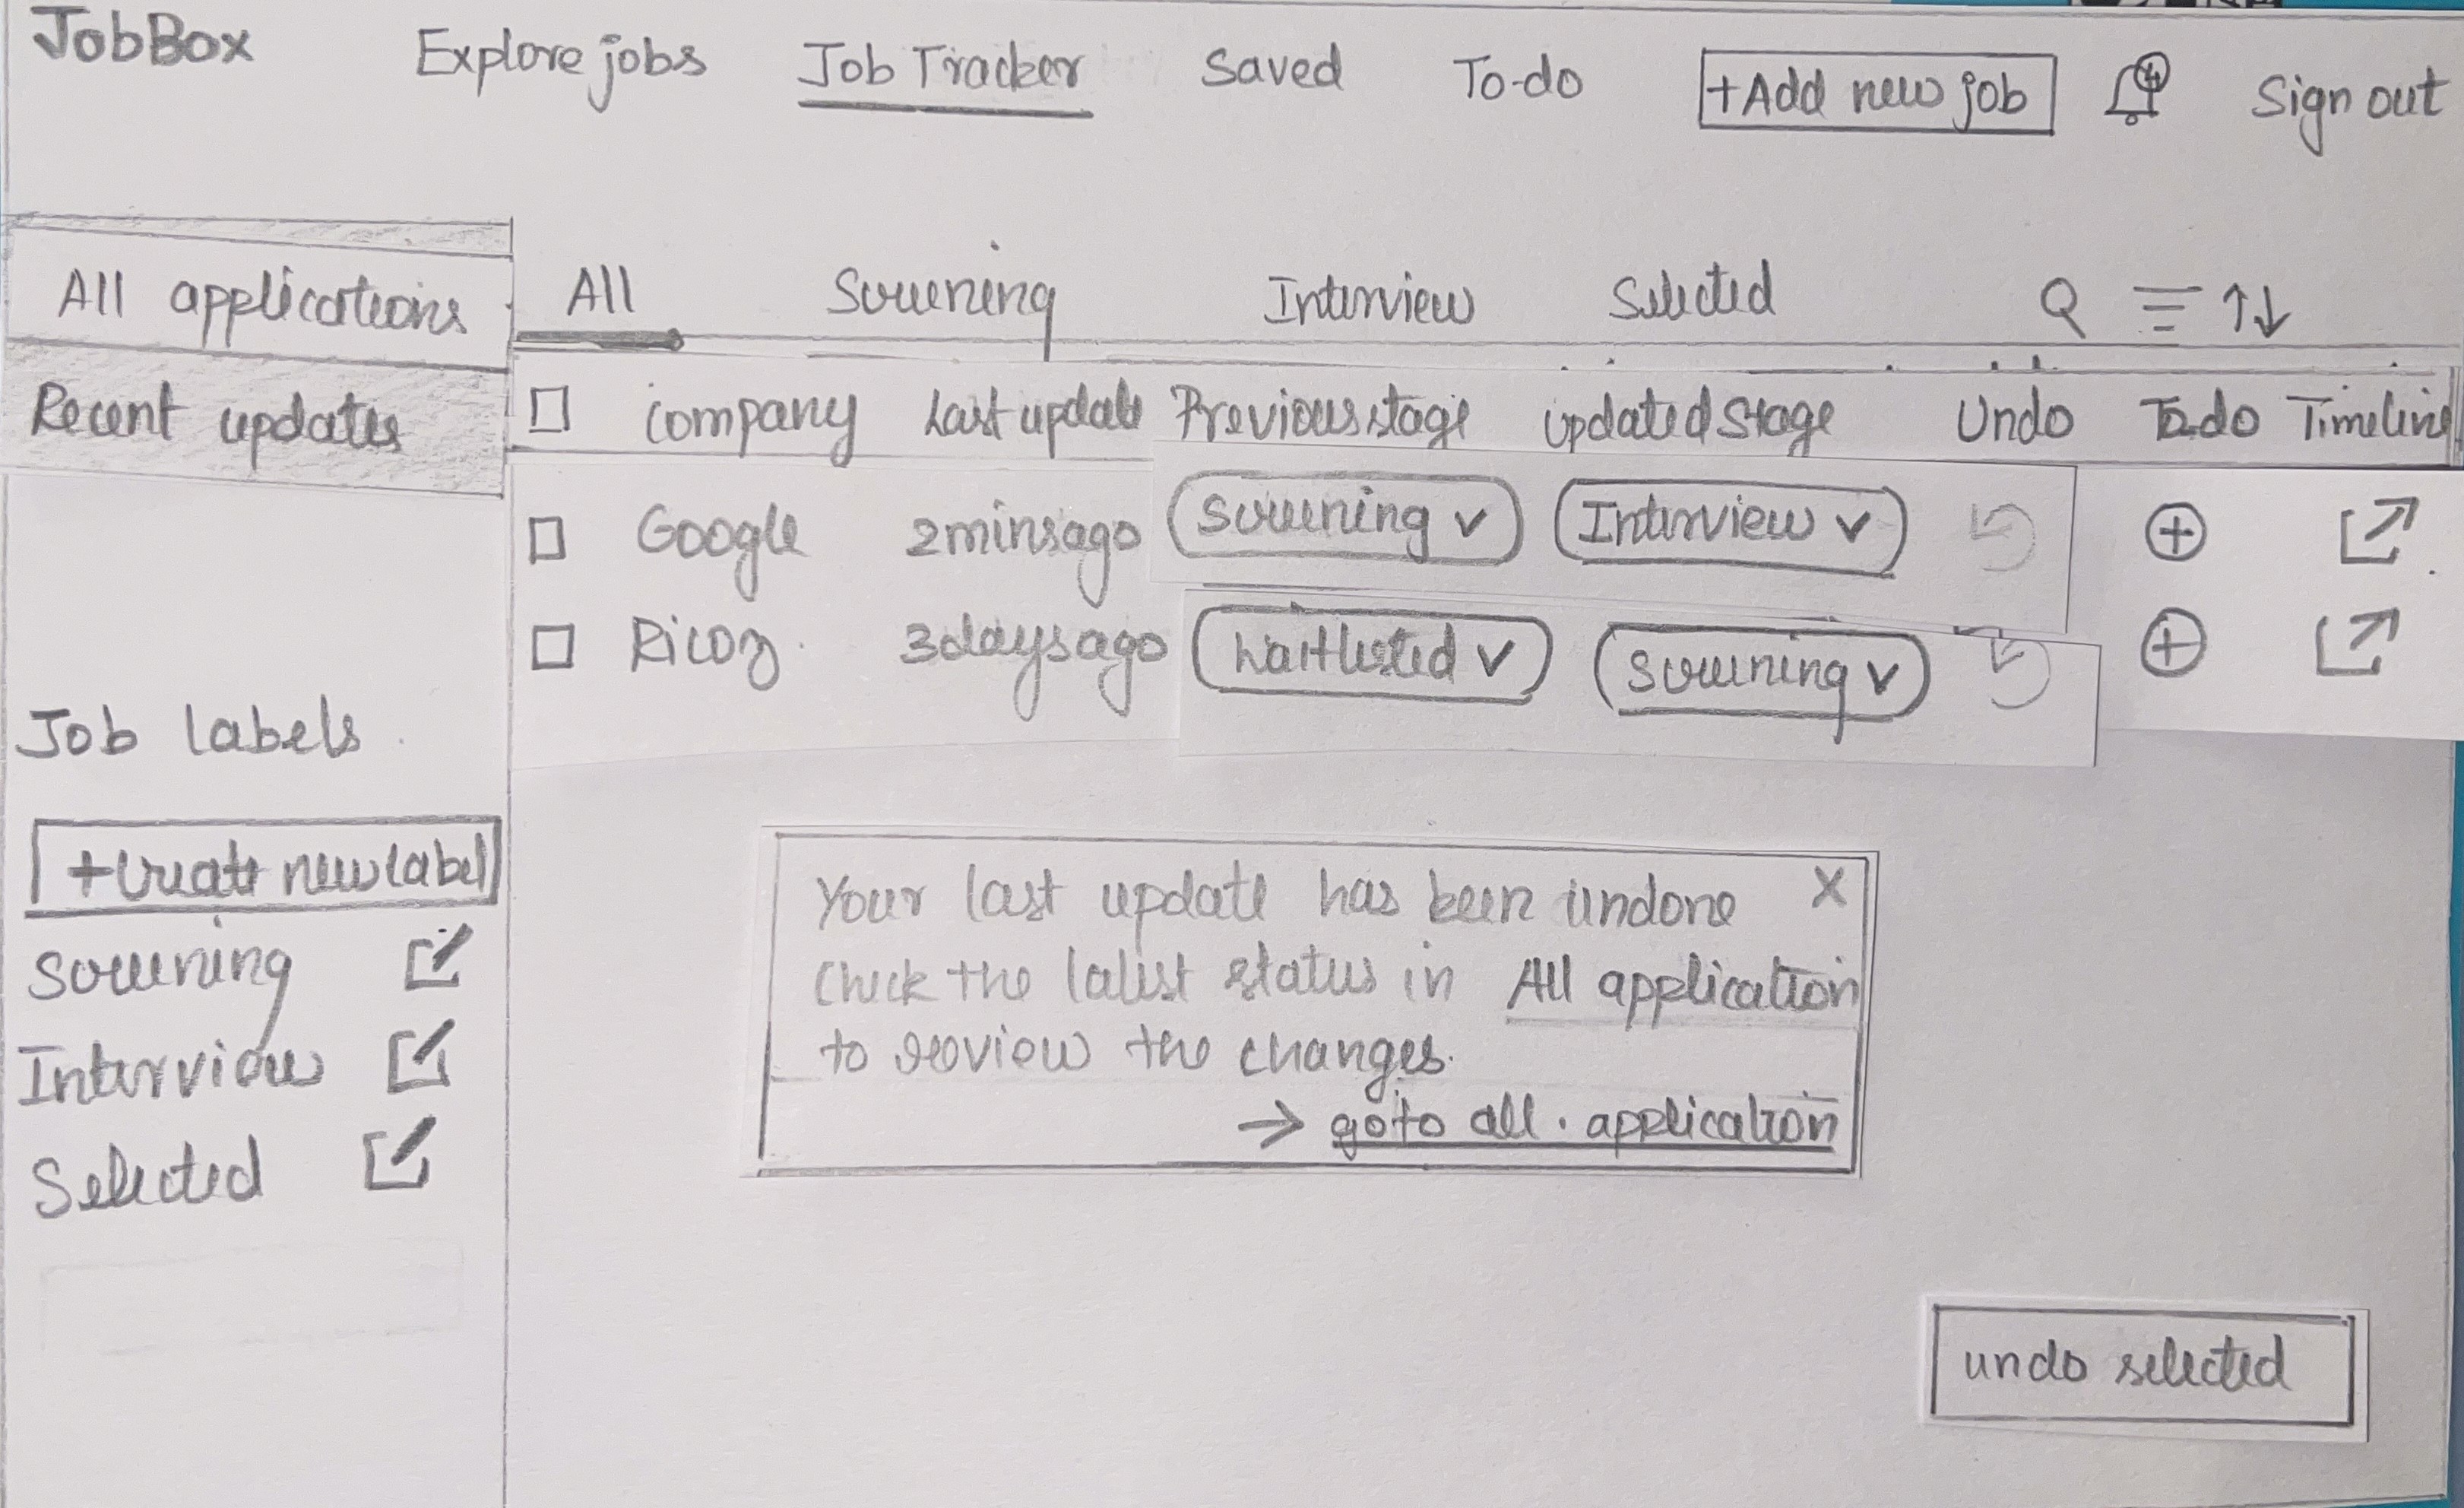 JobBox Explore jobs Job Tracker Saved To-do +Add new job 4 Sign out
All applications All Screening Interview Selected
Recent updates company Last update Previous stage updated Stage Undo To do Timeline
Google 2 mins ago Screening Interview
3 days ago Waitlisted Screening
Job labels
+Create new label
Screening
Interview
Selected
Your last update has been undone X
Check the latest status in All application
to review the changes.
→ go to all application
undo selected